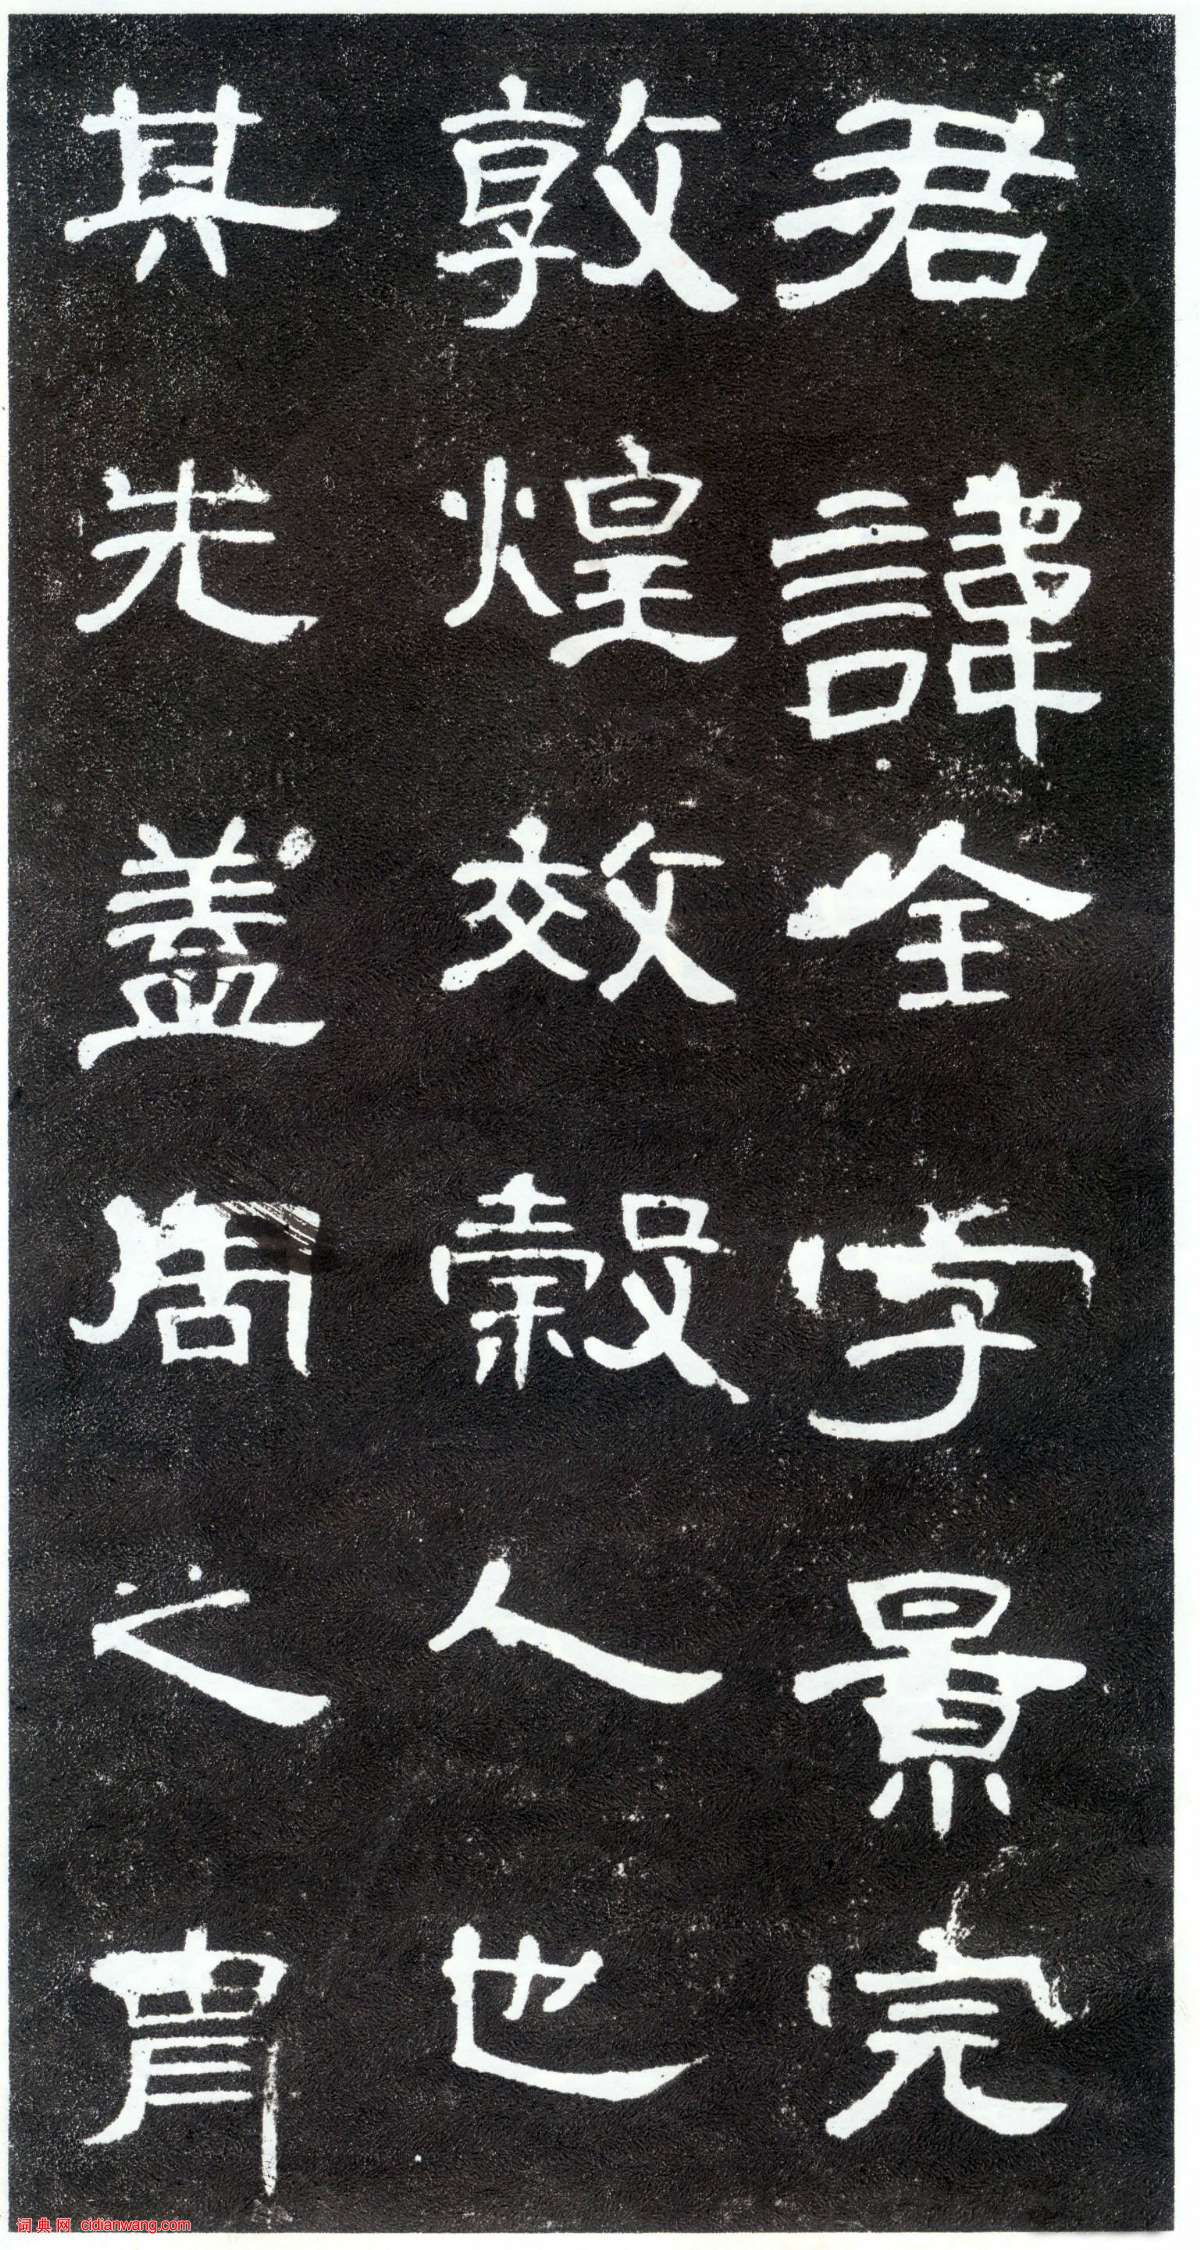 君諱全字景完
敦煌效穀人也
其先蓋周之胄
词典网 cidianwang.com